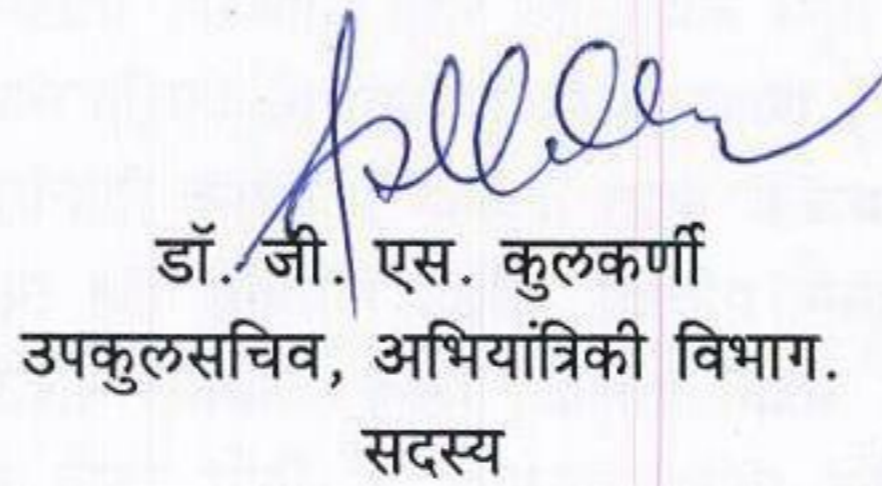 डॉ. जी. एस. कुलकर्णी
उपकुलसचिव, अभियांत्रिकी विभाग.
सदस्य